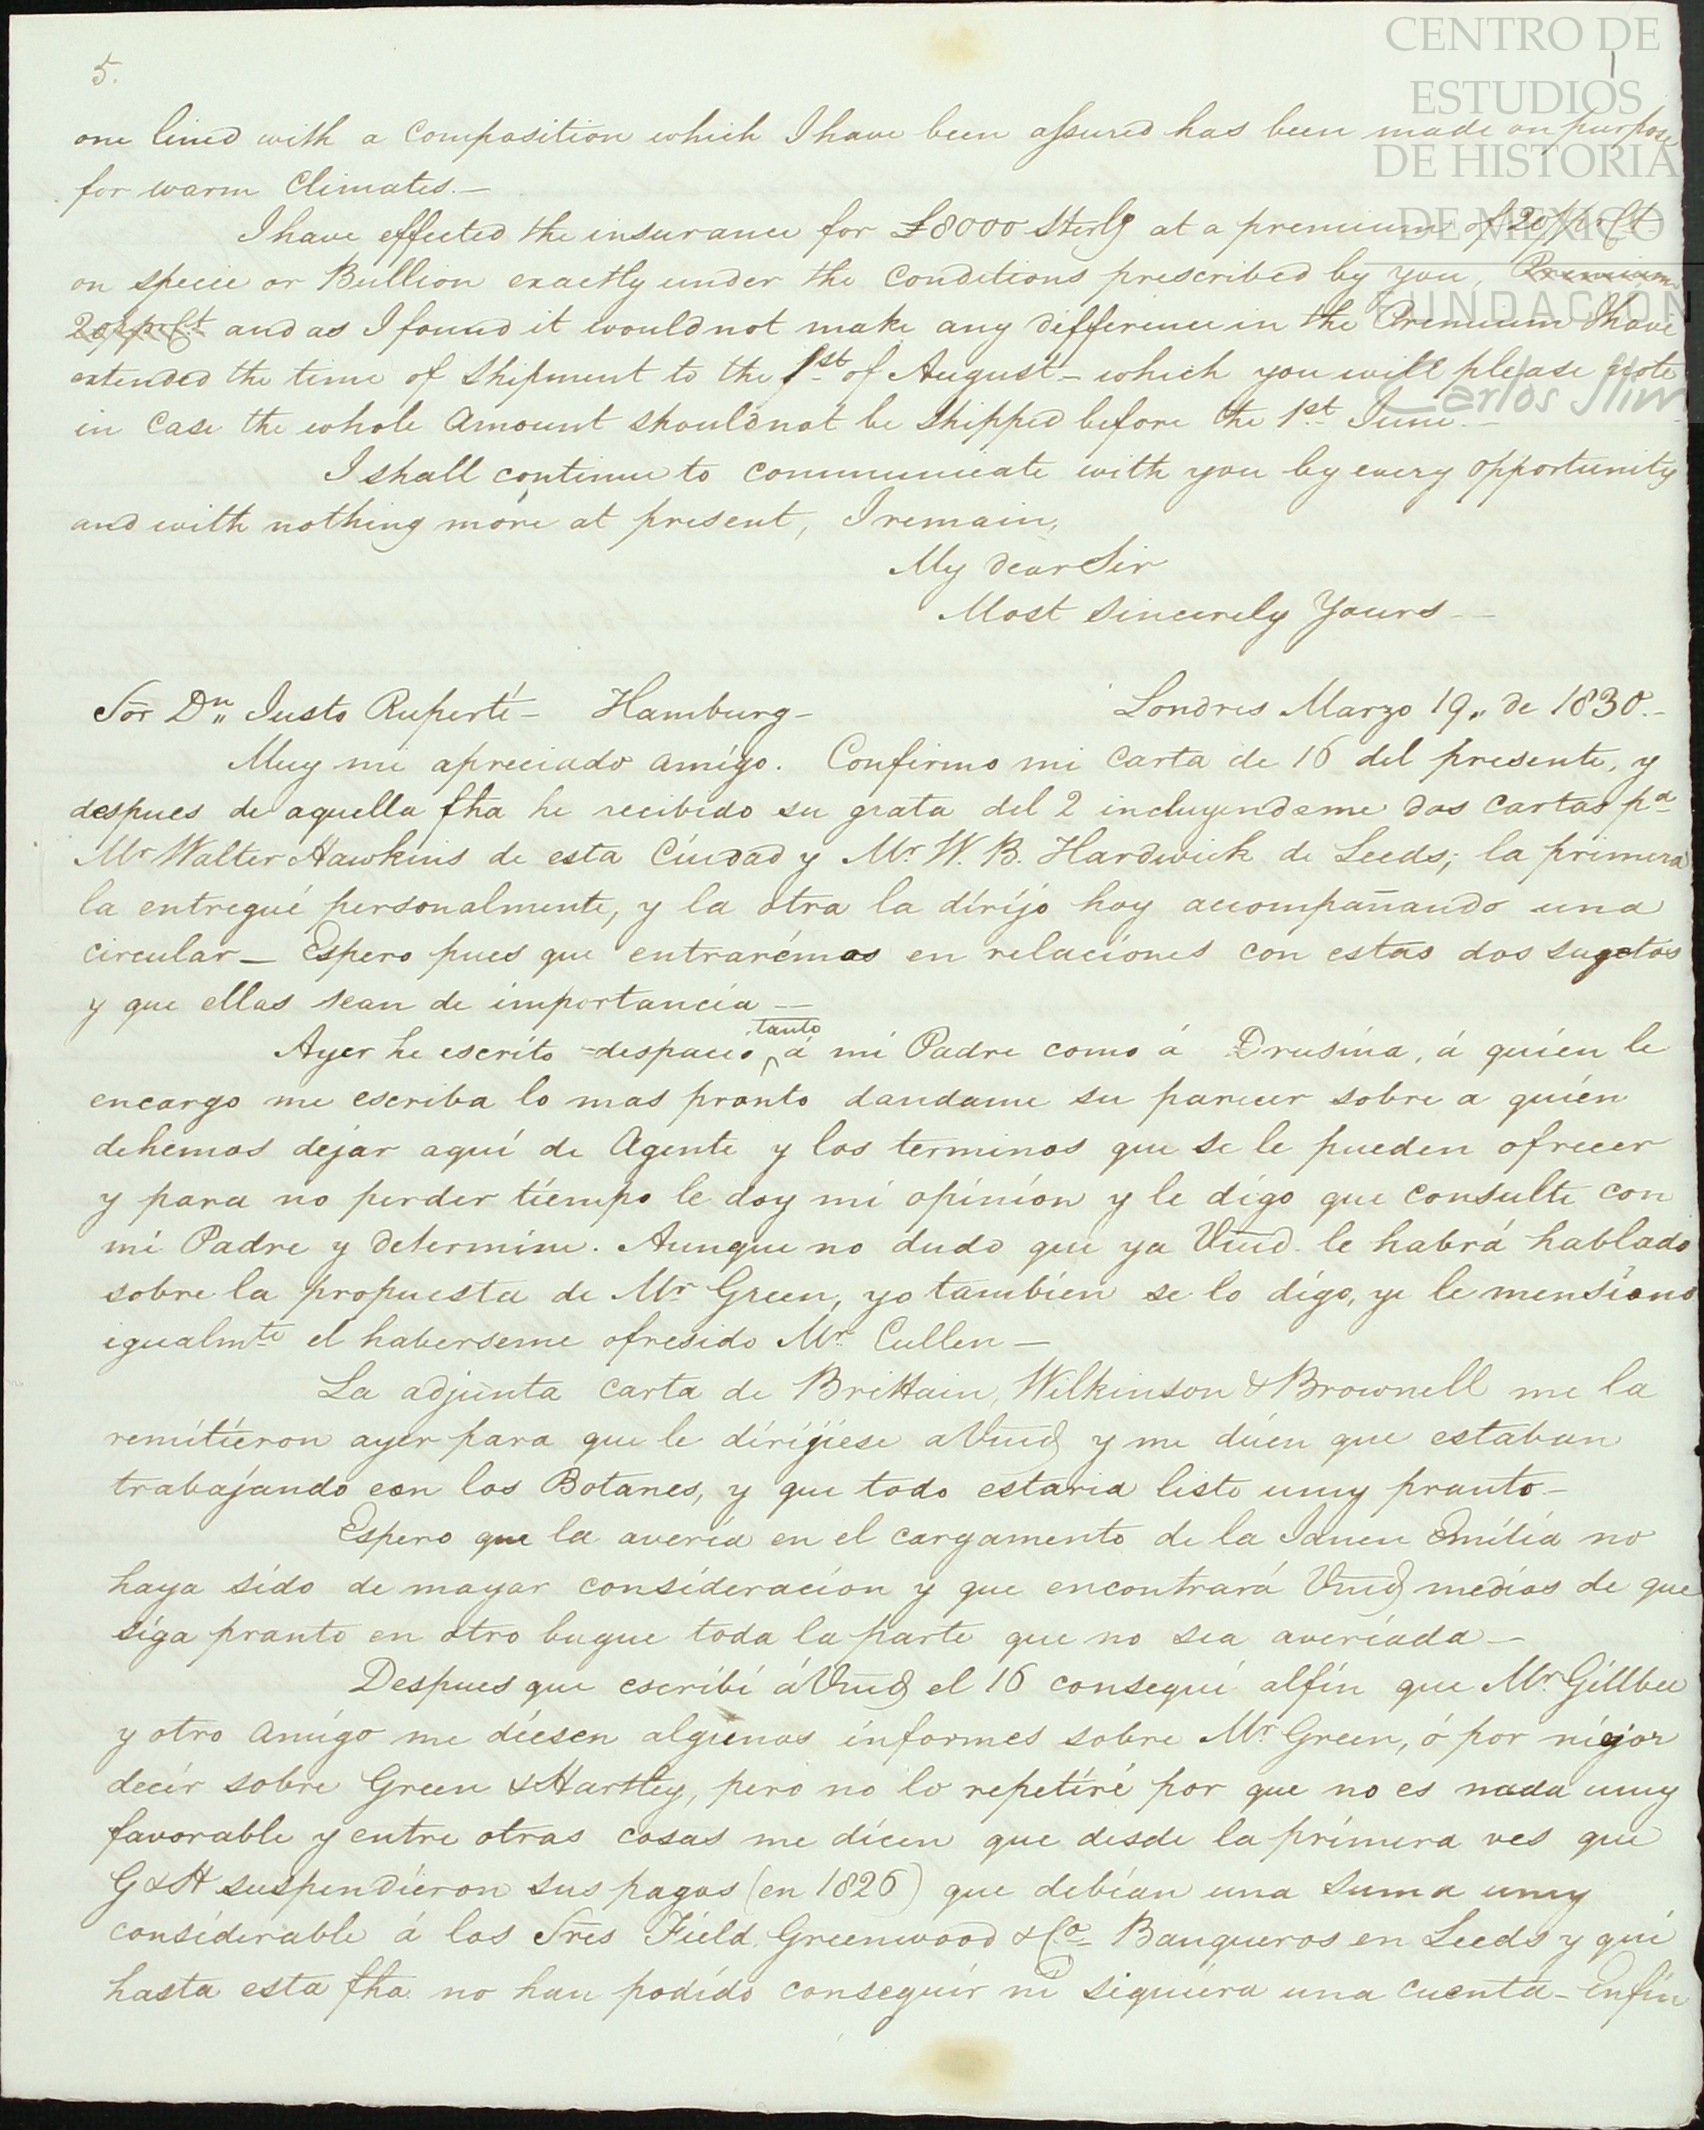 5.
CENTRO DE
ESTUDIOS
DE HISTORIA
DE MÉXICO
FUNDACIÓN
Carlos Slim
one lined with a composition which I have been assured has been made on purpose
for warm Climates.—
I have effected the insurance for £8000 Sterlg at a premium of 20/ p Ct
on specie or Bullion exactly under the Conditions prescribed by you, Premium
20/ p Ct and as I found it would not make any difference in the Premium I have
extended the time of Shipment to the 1st of August – which you will please note
in Case the whole Amount should not be Shipped before the 1st June.–
I shall continue to communicate with you by every opportunity
and with nothing more at present, I remain,
My dear Sir
Most Sincerely Yours —
Sor Dn Justo Ruperti – Hamburg – Londres Marzo 19,, de 1830.–
Muy mi apreciado amigo. Confirmo mi Carta de 16 del presente, y
despues de aquella fha he recibido su grata del 2 incluyendome dos Cartas pa
Mr Walter Hawkins de esta Ciudad y Mr. W. B. Hardwick de Leeds; la primera
la entregué personalmente, y la otra la dirijo hoy accompañando una
circular – Espero pues que entrarémos en relaciones con estos dos sugetos
y que ellas sean de importancia —
Ayer he escrito despacio tanto á mi Padre como á Drusina, á quien le
encargo me escriba lo mas pronto dandome su parecer sobre a quien
debemos dejar aquí de Agente y los terminos que se le pueden ofrecer
y para no perder tiempo le doy mi opinion y le digo que consulte con
mi Padre y determine. Aunque no dudo que ya Vmd. le habrá hablado
sobre la propuesta de Mr Green, yo tambien se lo digo, y le mensiono
igualmte el haberseme ofresido Mr. Cullen —
La adjunta carta de Brittain, Wilkinson & Brownell me la
remitieron ayer para que le dirijiese a Vmd y me dicen que estaban
trabajando con los Botones, y que todo estaria listo muy pronto –
Espero que la averia en el cargamento de la Emilia no
haya sido de mayor consideracion y que encontrará Vmd medios de que
siga pronto en otro buque toda la parte que no sea averiada –
Despues que escribi á Vmd el 16 consegui alfin que Mr. Gillbee
y otro amigo me diesen algunos informes sobre Mr. Green, ó por mejor
decir sobre Green & Hartley, pero no lo repetiré por que no es nada muy
favorable y entre otras cosas me dicen que desde la primera ves que
G & H suspendieron sus pagos (en 1826) que debian una suma muy
considerable á los Sres Field Greenwood & Co. Banqueros en Leeds y que
hasta esta fha no han podido conseguir ni siquiera una cuenta – Enfin